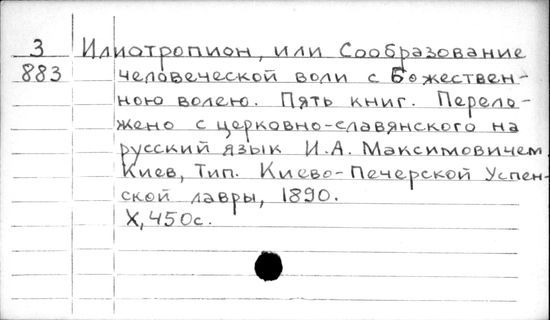 З Илиотропион, или Сообразование
883 человеческой воли с Божествен-
ною волею. Пять книг. Перело-
жено с церковно-славянского на
русский язык И.А. Максимовичем.
Киев, Тип. Киево-Печерской Успен-
ской лавры, 1890.
X, 450с.